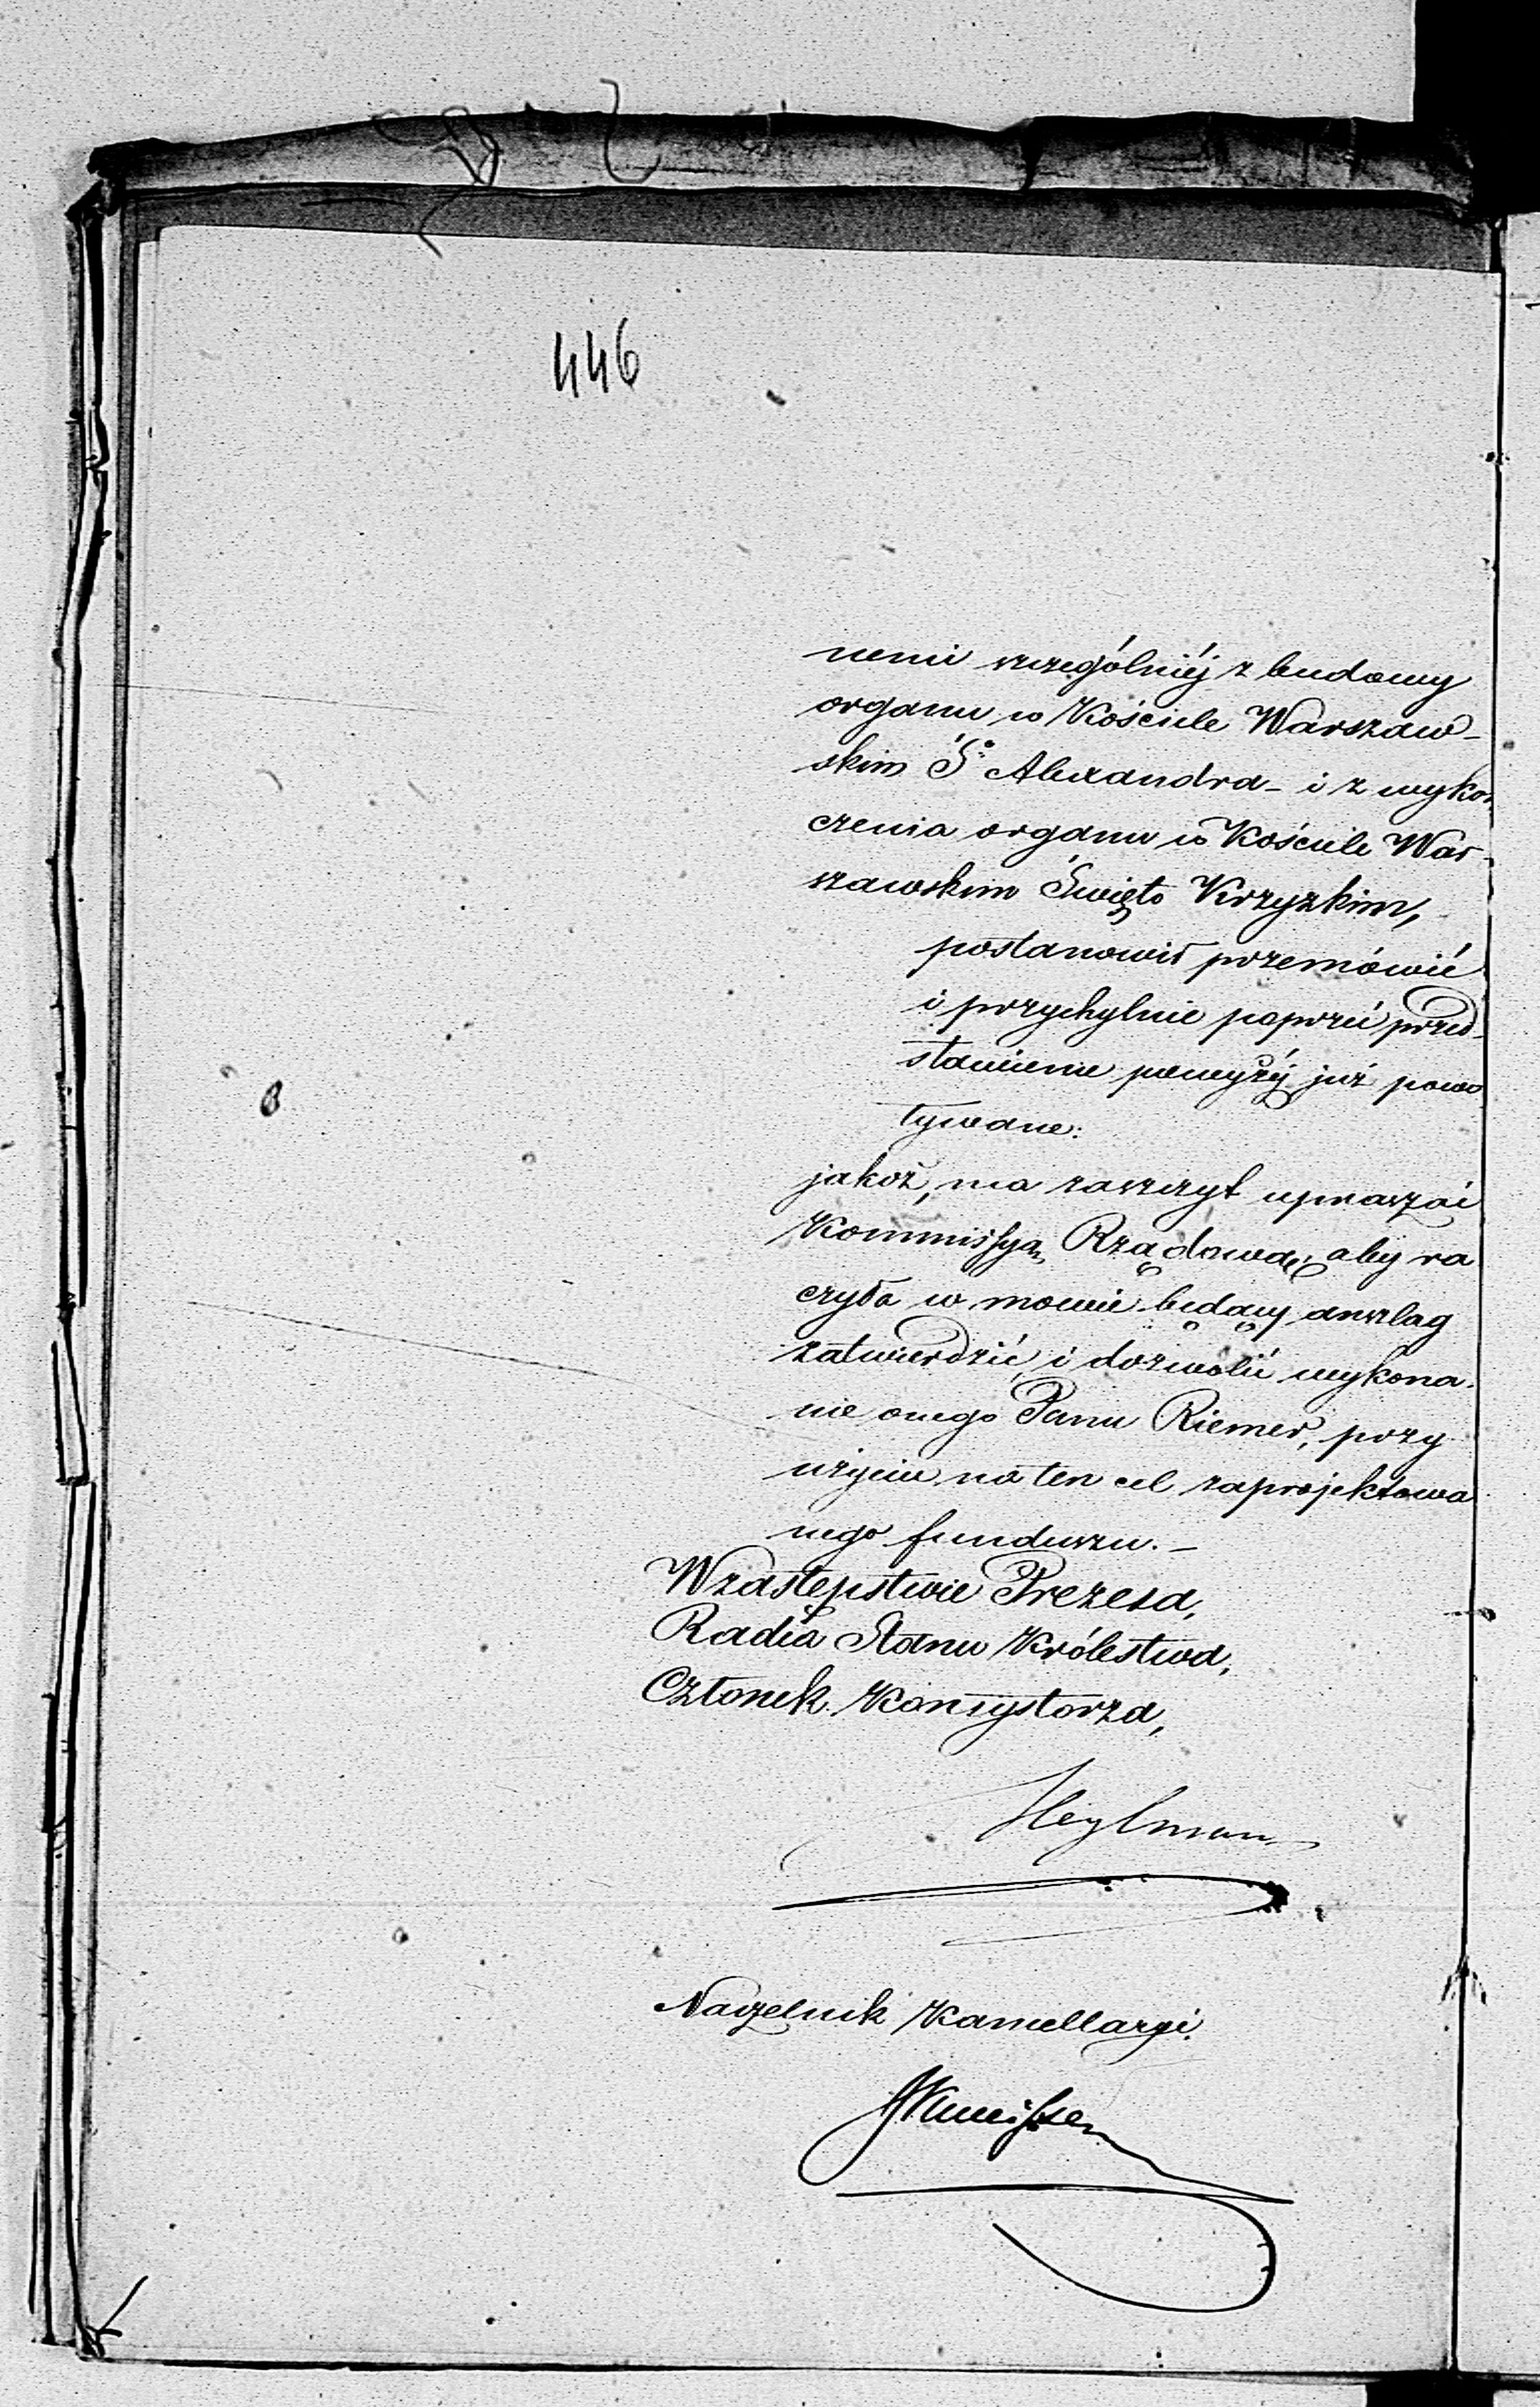 446
nemi szczególniéj z budowy
organu w Kościele Warszaw-
skim Sº Alexandra - i z wykoń-
czenia organu w Kościele War-
szawskim Święto Krzyzkim,
postanowił przemówić
i przychylnie poprzeć przed-
stawienie powyżéj już powo
ływane:
jakoż, ma zaszczyt upraszać
Kommissyą Rządową, aby ra
czyła w mowie będący anszlag
zatwierdzić, i dozwolić wykona-
nie onego Panu Riemer, przy
użyciu na ten cel zaprojektowa
nego funduszu. -
W zastępstwie Prezesa,
Radca Stanu Królestwa,
Członek Konsystorza,
Heylman
Naczelnik Kancellaryi.